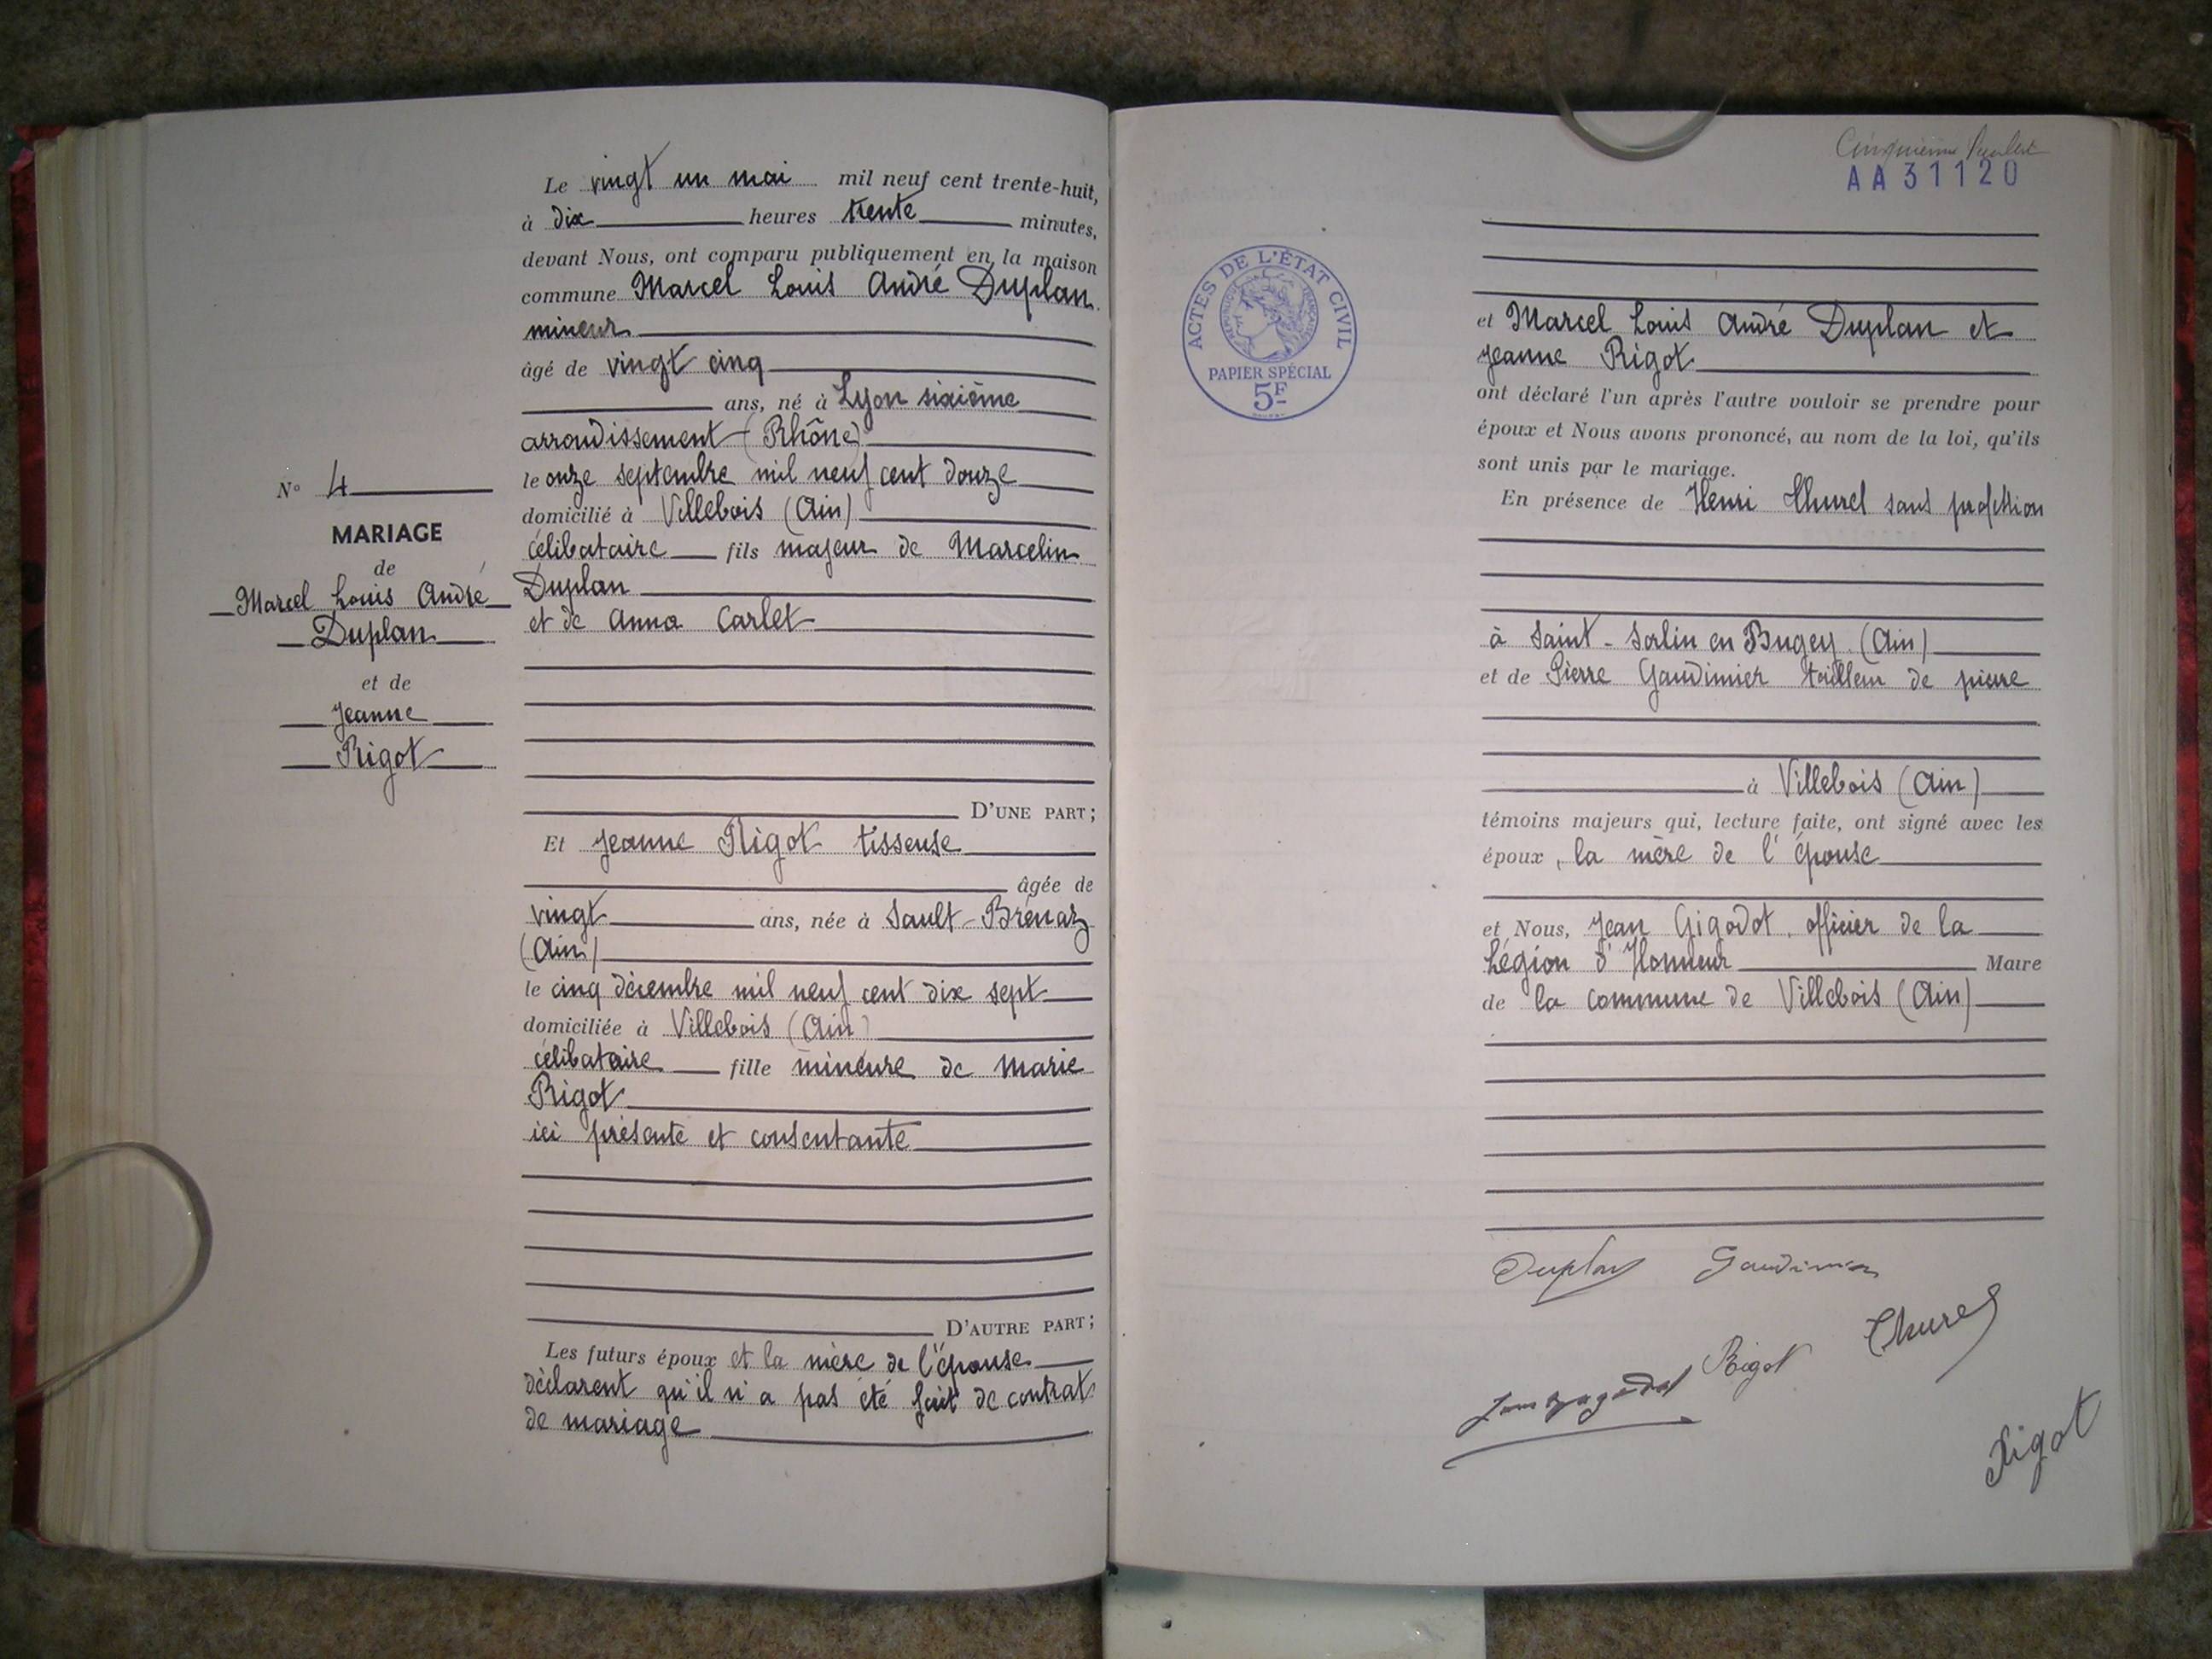 N° 4
MARIAGE
de
Marcel Louis André
Duplan
et de
Jeanne
Rigot
Le vingt un mai mil neuf cent trente-huit,
à dix heures trente minutes,
devant Nous, ont comparu publiquement en la maison
commune Marcel Louis André Duplan
mineur
âgé de vingt cinq
ans, né à Lyon sixième
arrondissement (Rhône)
le onze septembre mil neuf cent douze
domicilié à Villebois (Ain)
célibataire fils majeur de Marcelin
Duplan
et de Anna Carlet
D'UNE PART;
Et Jeanne Rigot tisseuse
âgée de
vingt ans, née à Sault-Brénaz
(Ain)
le cinq décembre mil neuf cent dix sept
domiciliée à Villebois (Ain)
célibataire fille mineure de Marie
Rigot
ici présente et consentante
D'AUTRE PART;
Les futurs époux et la mère de l'épouse
déclarent qu'il n'a pas été fait de contrat
de mariage
Cinquième
AA31120
ACTES DE L'ÉTAT CIVIL
RÉPUBLIQUE FRANÇAISE
PAPIER SPÉCIAL
5F
et Marcel Louis André Duplan et
Jeanne Rigot
ont déclaré l'un après l'autre vouloir se prendre pour
époux et Nous avons prononcé, au nom de la loi, qu'ils
sont unis par le mariage.
En présence de Henri Thurel sans profession
à Saint-Sorlin en Bugey (Ain)
et de Pierre Gaudimier tailleur de pierre
à Villebois (Ain)
témoins majeurs qui, lecture faite, ont signé avec les
époux, la mère de l'épouse
et Nous, Jean Gigodot, officier de la
Légion d'Honneur Maire
de la commune de Villebois (Ain)
Duplan Gaudimier
Thurel
Jean Gigodot Rigot
Rigot